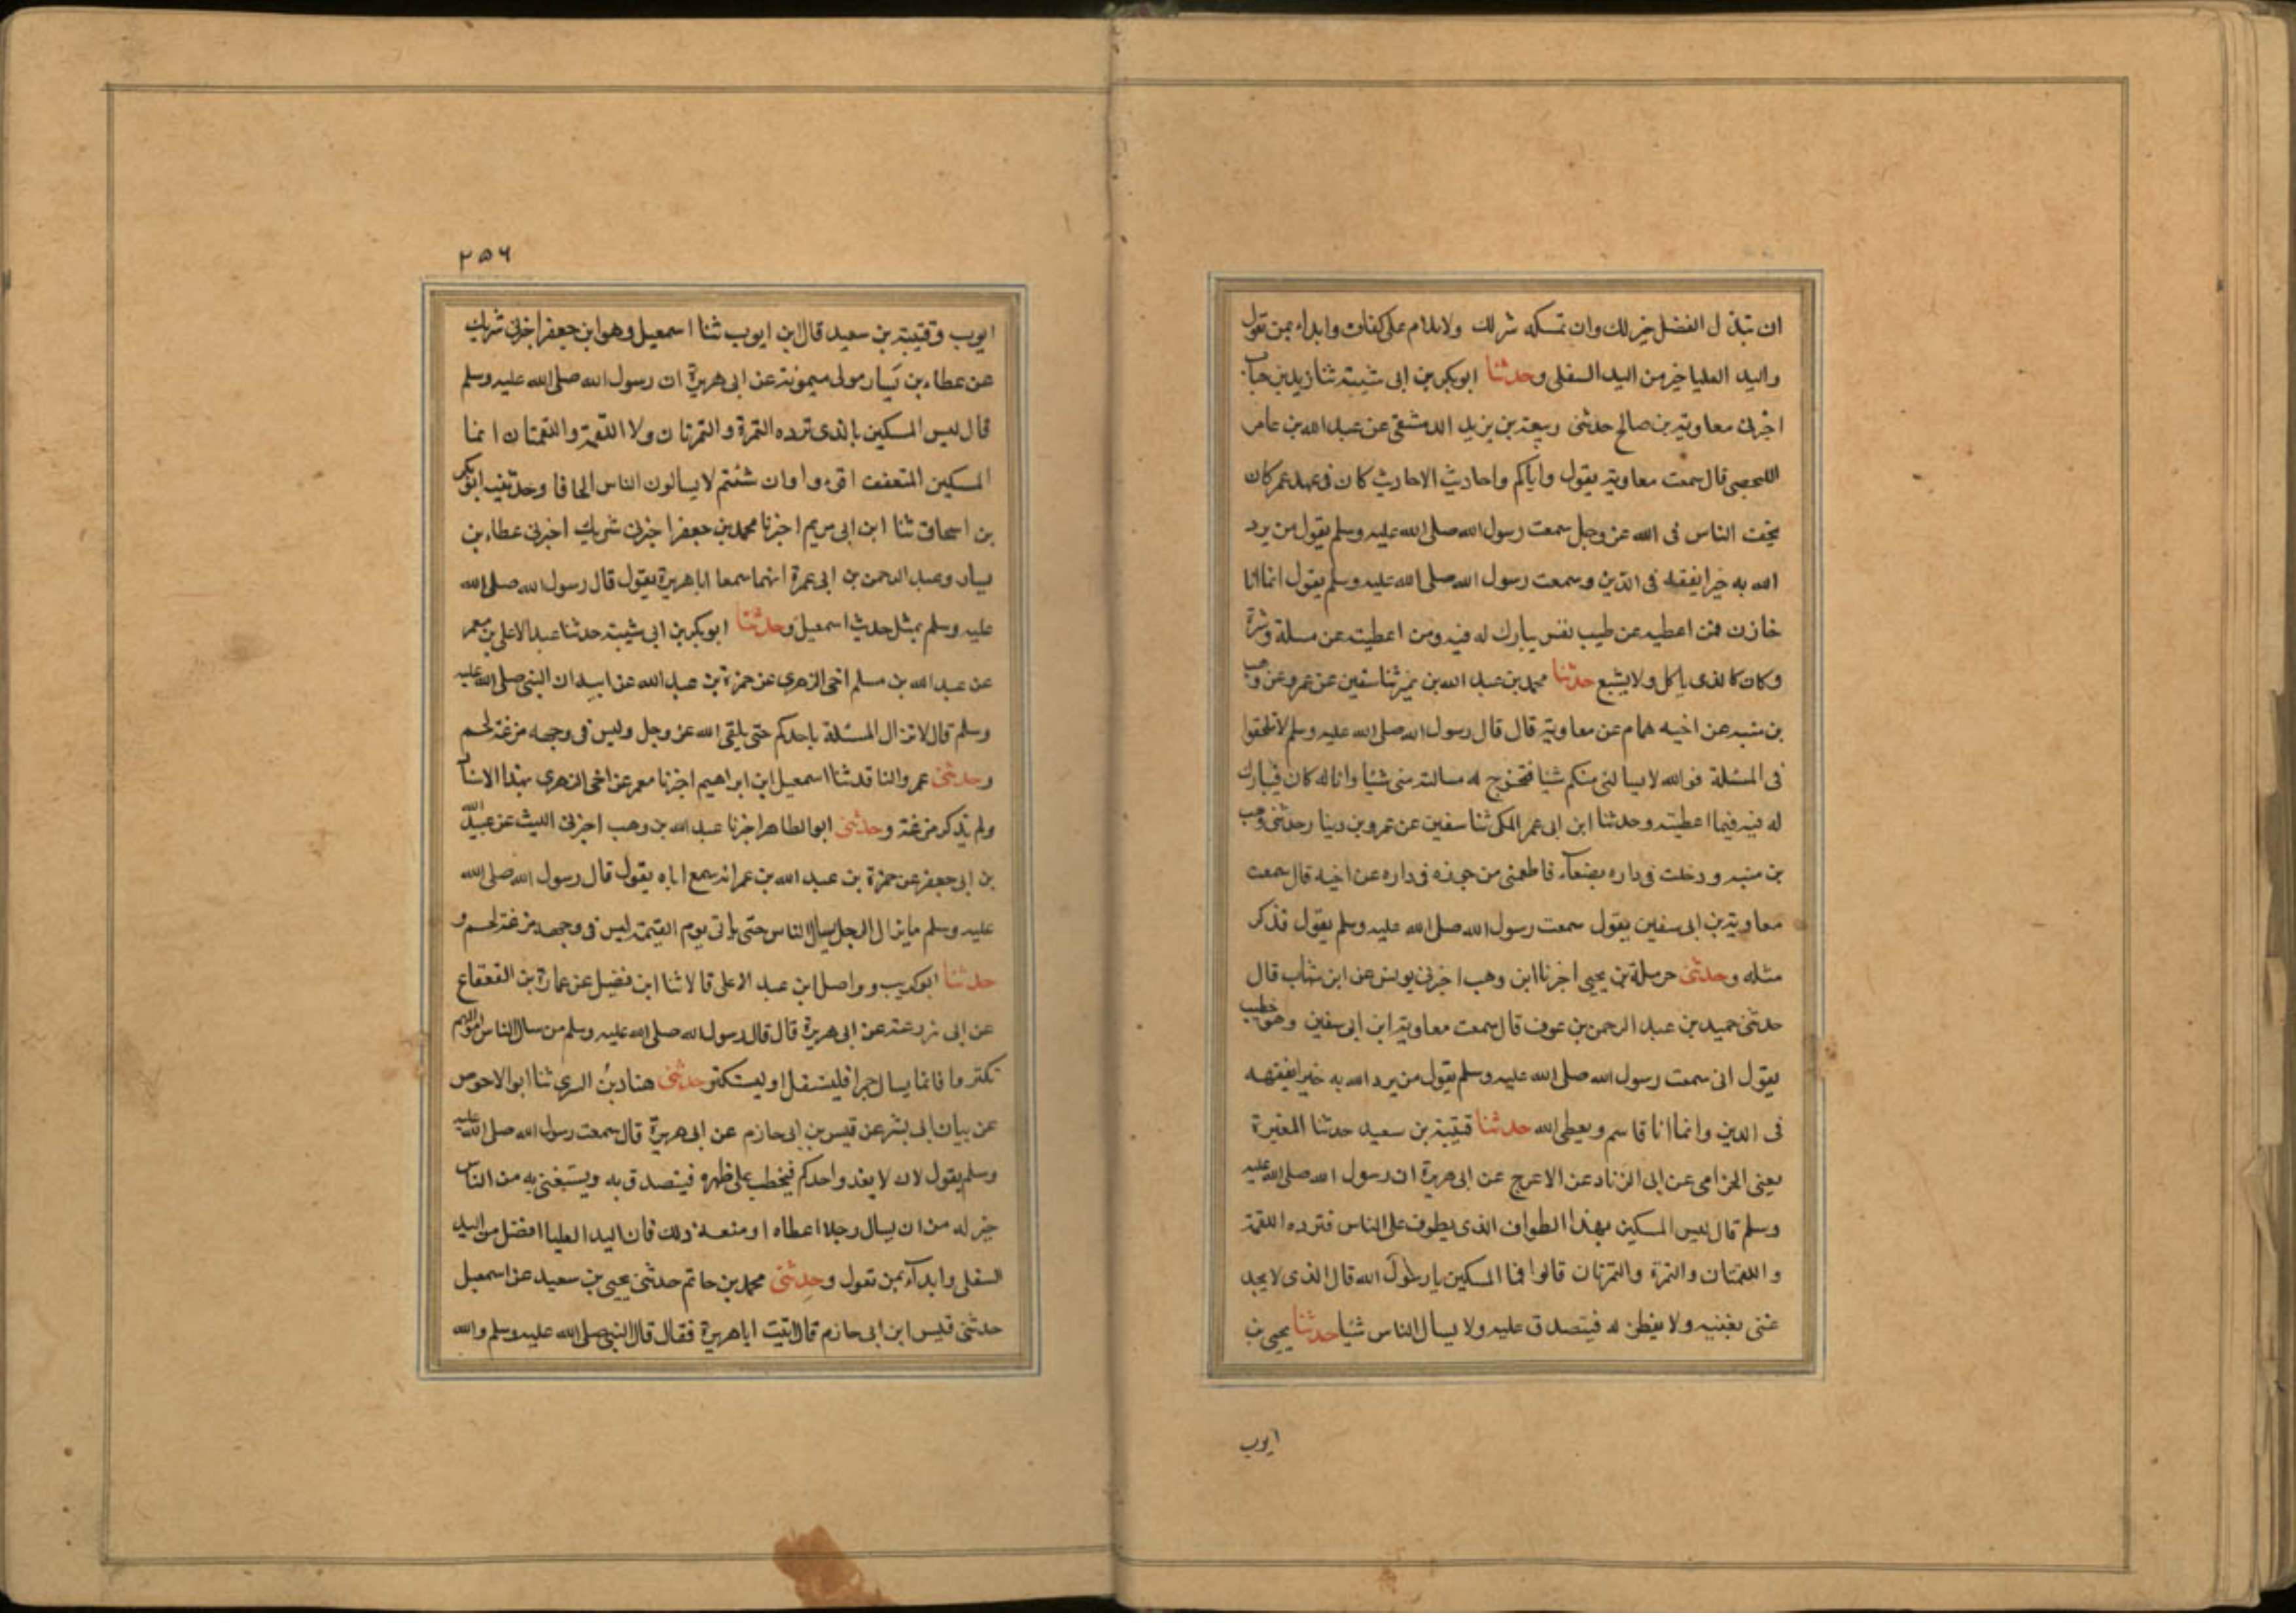 ان تبذل الفضل خير لك وان تمسكه شر لك ولا تلام على كفاف وابداء بمن تعول
واليد العليا خير من اليد السفلى وحدثنا ابوبكر بن ابى شيبة ثنا زيد بن حباب
اخبرنى معاوية بن صالح حدثنى ربيعة بن يزيد الدمشقى عن عبد الله بن عامر
اليحصبى قال سمعت معاوية يقول واياكم واحاديث الاحاديث كان فى عهد عمر كان
يخيف الناس فى الله عز وجل سمعت رسول الله صلى الله عليه وسلم يقول من يرد
الله به خيرا يفقه فى الدين وسمعت رسول الله صلى الله عليه وسلم يقول انما انا
خازن فمن اعطيه عن طيب نفس يبارك له فيه ومن اعطيته عن مسلة وشرة
وكان كالذى ياكل ولا يشبع حدثنا محمد بن عبد الله بن نمير ثنا سفين عن عمرو عن وهب
بن منبه عن اخيه همام عن معاوية قال قال رسول الله صلى الله عليه وسلم لا تلحفوا
فى المسئلة فوالله لا يسالنى منكم شيئا فتخرج له مسالته منى شيئا وانا له كان فيبارك
له فيه فيما اعطيته وحدثنا ابن ابى عمر المكى ثنا سفين عن عمرو بن دينا رحدثنى وهب
بن منبه ودخلت فى داره بصنعاء فاطعمنى من جوزه فى داره عن اخيه قال سمعت
معاوية بن ابى سفين يقول سمعت رسول الله صلى الله عليه وسلم يقول فذكر
مثله وحدثنى حرملة بن يحيى اخبرنا ابن وهب اخبرنى يونس عن ابن شهاب قال
حدثنى حميد بن عبد الرحمن بن عوف قال سمعت معاوية ابن ابى سفين وهو خطيب
يقول انى سمعت رسول الله صلى الله عليه وسلم يقول من يرد الله به خيرا يفقهه
فى الدين وانما انا قاسم ويعطى الله حدثنا قتيبة بن سعيد حدثنا المغيرة
يعنى الحزامى عن ابى الزناد عن الاعرج عن ابى هريرة ان رسول الله صلى الله عليه
وسلم قال ليس المسكين بهذا الطواف الذى يطوف على الناس فترده اللقمة
واللقمتان والتمرة والتمرتان قالوا فما المسكين يا رسول الله قال الذى لا يجد
غنى يغنيه ولا يفطن له فيتصدق عليه ولا يسال الناس شيئا حدثنا يحيى بن
ايوب
٢٥٦
ايوب وقتيبة بن سعيد قال ابن ايوب ثنا اسمعيل وهو ابن جعفر اخبرنى شريك
عن عطاء بن يسار مولى ميمونة عن ابى هريرة ان رسول الله صلى الله عليه وسلم
قال ليس المسكين بالذى ترده التمرة والتمرتان ولا اللقمة واللقمتان انما
المسكين المتعفف اقرءوا ان شئتم لا يسالون الناس الحافا وحدثنيه ابوبكر
بن اسحاق ثنا ابن ابى مريم اخبرنا محمد بن جعفر اخبرنى شريك اخبرنى عطاء بن
يسار وعبد الرحمن بن ابى عمرة انهما سمعا ابا هريرة يقول قال رسول الله صلى الله
عليه وسلم بمثل حديث اسمعيل وحدثنا ابوبكر بن ابى شيبة حدثنا عبد الاعلى بن معمر
عن عبد الله بن مسلم اخى الزهرى عن حمزة بن عبد الله عن ابيه ان النبى صلى الله عليه
وسلم قال لا تزال المسئلة باحدكم حتى يلقى الله عز وجل وليس فى وجهه مزغة لحم
وحدثنى عمرو الناقد ثنا اسمعيل ابن ابراهيم اخبرنا معمر عن اخى الزهرى بهذا الاسناد
ولم يذكر مزغة وحدثنى ابو الطاهر اخبرنا عبد الله بن وهب اخبرنى الليث عن عبيد الله
بن ابى جعفر عن حمزة بن عبد الله بن عمر انه سمع اباه يقول قال رسول الله صلى الله
عليه وسلم ما يزال الرجل يسال الناس حتى ياتى يوم القيمة ليس فى وجهه مزغة لحم و
حدثنا ابوكريب وواصل ابن عبد الاعلى قالا ثنا ابن فضيل عن عمارة بن القعقاع
عن ابى زرعة عن ابى هريرة قال قال رسول الله صلى الله عليه وسلم من سال الناس اموالهم
تكثرما فانما يسال جمرا فليستقل او ليستكثر وحدثنى هناد بن السرى ثنا ابو الاحوص
عن بيان ابى بشر عن قيس بن ابى حازم عن ابى هريرة قال سمعت رسول الله صلى الله عليه
وسلم يقول لان لا يغدو احدكم فيخطب على ظهره فيتصدق به ويستغنى به من الناس
خير له من ان يسال رجلا اعطاه او منعه ذلك فان اليد العليا افضل من اليد
السفلى وابداء بمن تعول وحدثنى محمد بن حاتم حدثنى يحيى بن سعيد عن اسمعيل
حدثنى قيس ابن ابى حازم قال اتيت ابا هريرة فقال قال النبى صلى الله عليه وسلم والله